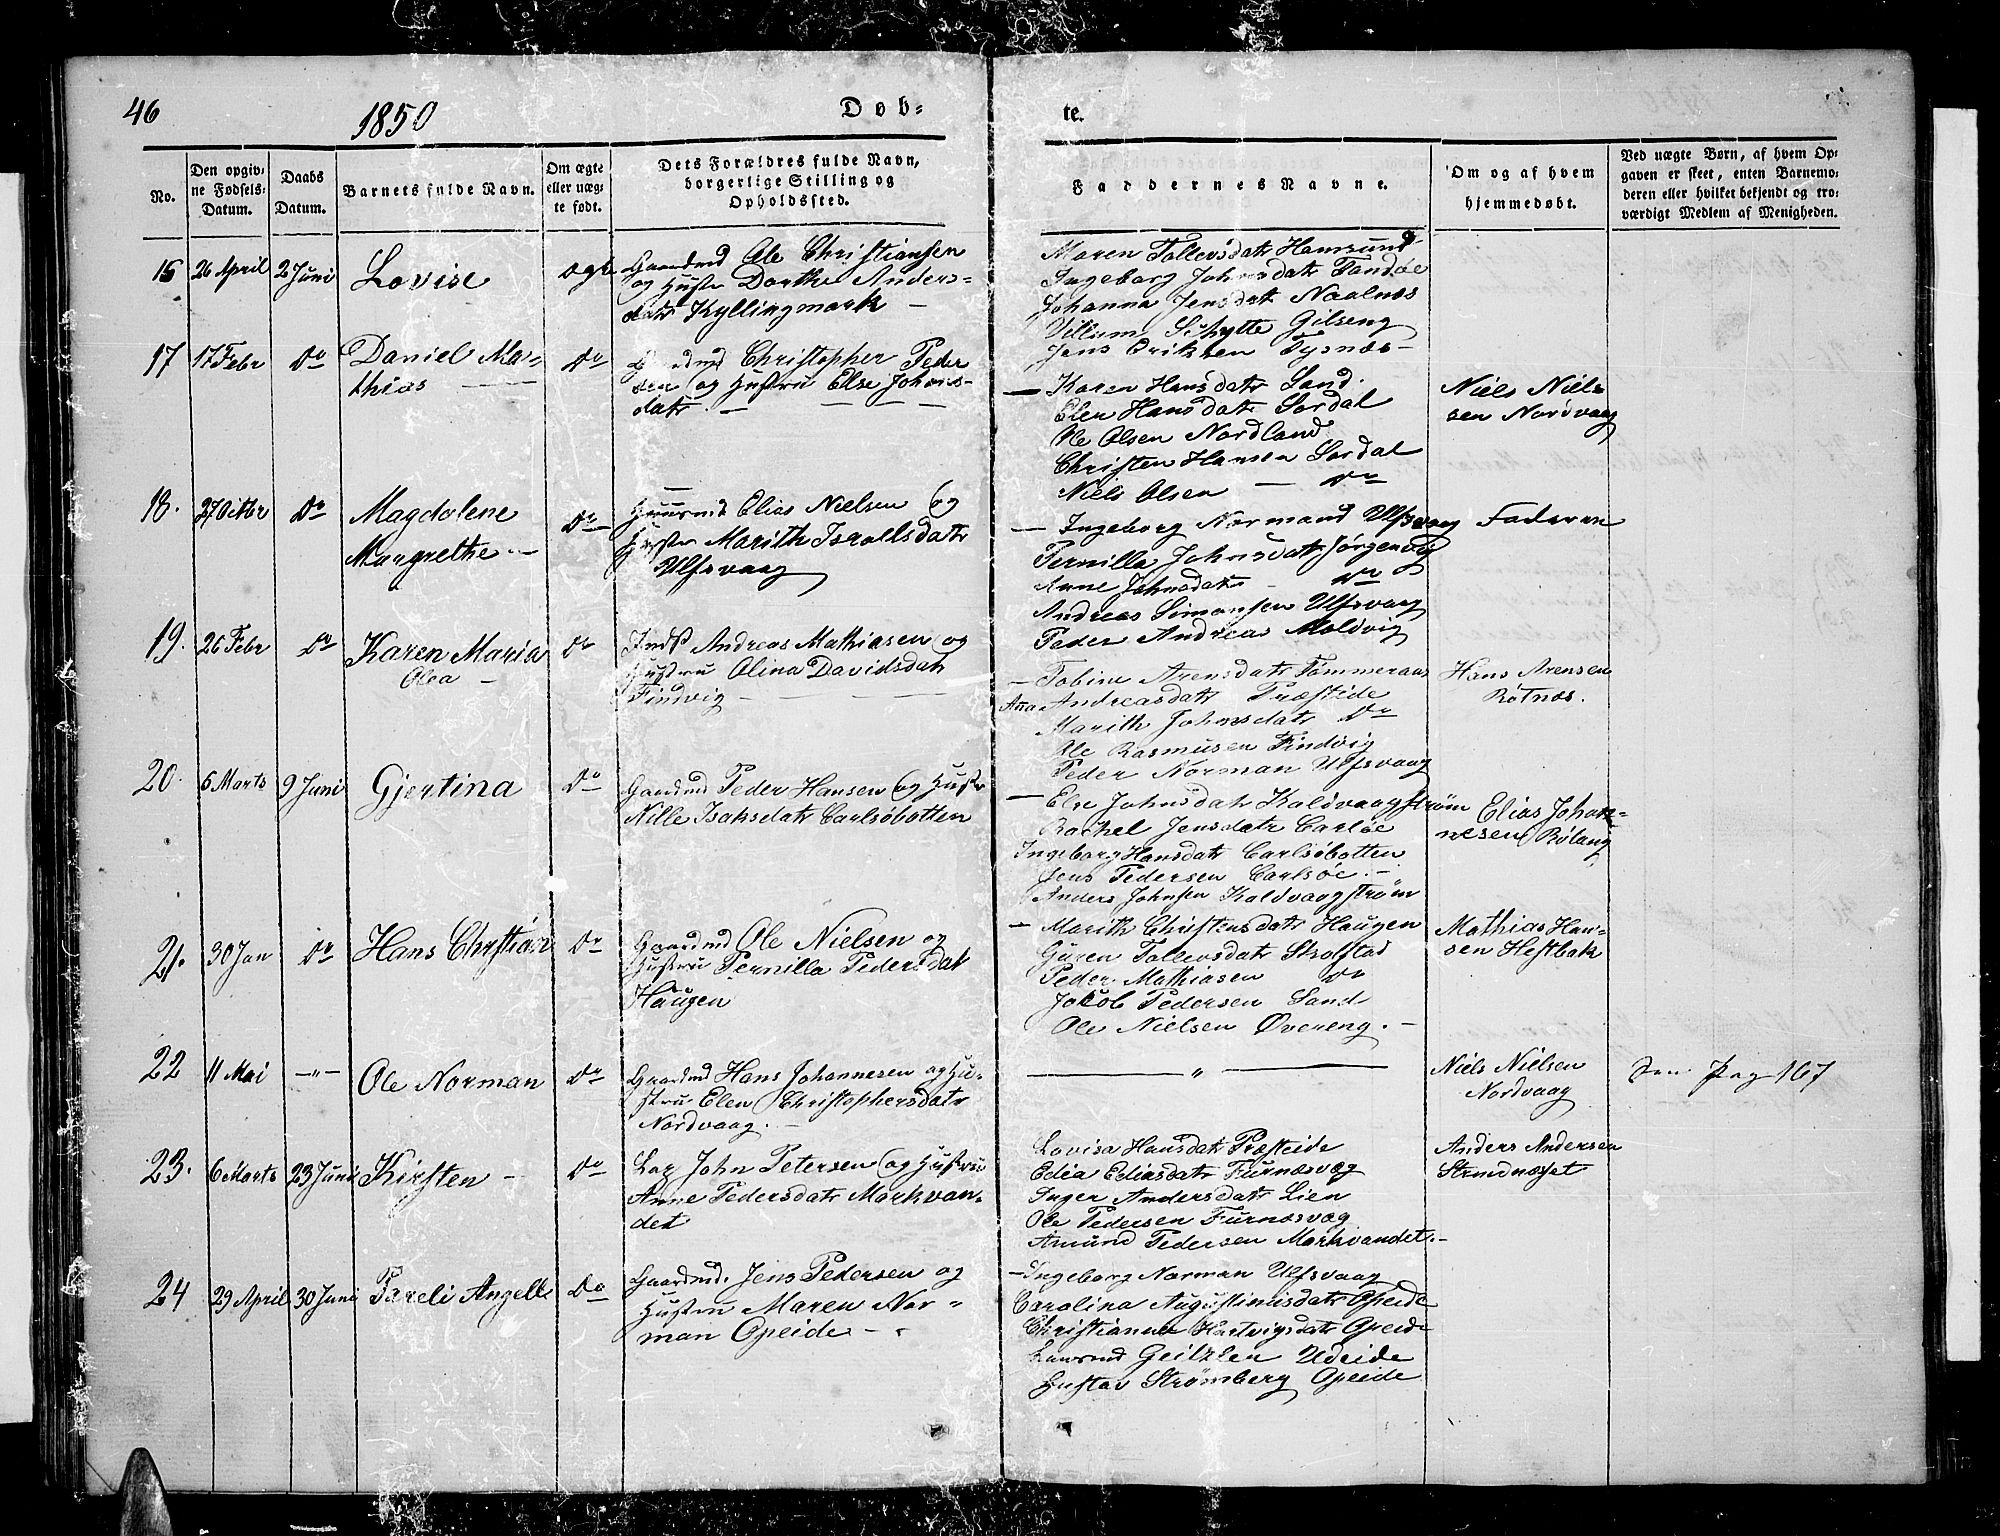 46
1850
Døb-
te.
No.
Den opgiv-
ne Fødsels-
Datum.
Daabs
Datum.
Barnets fulde Navn.
Om ægte
eller uæg-
te født.
Dets Forældres fulde Navn,
borgerlige Stilling og
Opholdssted.
Faddernes Navne.
Om og af hvem
hjemmedøbt.
Ved uægte Børn, af hvem Op-
gaven er skeet, enten Barnemo-
deren eller hvilket bekjendt og tro-
værdigt Medlem af Menigheden.
16 26 April 2 Juni Lovise ægte
Gaardmd Ole Christiansen
og Hustr Dorthe Anders-
datr Kyllingmark –
Maren Tollevsdatr Hamsund
Ingeborg Johnsdatr Tandøe
Johanna Jensdatr Naalnæs
Villum Schytte Gilseng
Jens Eriksen Tysnæs –
17 17 Febr Do Daniel Ma-
thias Do
Gaardmd Christopher Peder
sen og Hustru Else Johans-
datr –
– Karen Hansdatr Sand.
Elen Hansdatr Sørdal
Ole Olsen Nordland
Christen Hansen Sørdal
Niels Olsen – Do
Niels Niel-
sen Nordvaag
18. 27 Octbr Do Magdalene
Margrethe – Do
Huusmd Elias Nielsen og
Hustr Marith Israelsdatr
Ulfsvaag
– Ingeborg Normand Ulfsvaag
Pernilla Johnsdatr Jørgenvig
Anne Johnsdatr – Do
Andreas Simonsen Ulfsvaag
Peder Andreas Moldvig
Faderen
19. 26 Febr Do Karen Maria
Olea – Do
Inds Andreas Mathiasen og
Hustru Olina Davidsdatr
Findvig –
– Tobine Arensdatr Tømmeraas
Ana Andreasdatr Præsteide
Marith Johnsdatr Do
Ole Rasmusen Findvig
Peder Norman Ulfsvaag
Hans Arensen
Rotnæs.
20. 6 Marts 9 Juni Gjertina Do
Gaardmd Peder Hansen og Hustr
Nille Isaksdatr Carlsøbotten
– Else Johnsdatr Kaldvaagstrøm
Rachel Jensdatr Carlsøe
Ingeborg Hansdatr Carlsøbotten
Jens Pedersen Carlsøe. –
Anders Johnsen Kaldvaagstrøm
Elias Johan-
nesen Rølang
21. 30 Jan Do Hans Christian Do
Gaardmd Ole Nielsen og
Hustru Pernilla Pedersdat
Haugen
– Marith Christensdatr Haugen
Guren Tollevsdatr Skolstad
Peder Mathiasen Do
Jakob Pedersen Sand
Ole Nielsen Øvereng. –
Mathias Han-
sen Hestbak
22 11 Mai –"– Ole Norman Do
Gaardmd Hans Johannesen og Hu-
stru Elen Christophersdatr
Nordvaag. –
"
Niels Nielsen
Nordvaag
Pag 167
23. 6 Marts 23 Juni Kirsten – Do
John Petersen og Hustru
Anne Pedersdatr Markvan-
det
Lovisa Hansdatr Præsteide
Edia Ediasdatr Furnæsvaag
Inger Andersdatr Lien
Ole Pedersen Furnæsvaag
Amund Pedersen Markvandet. –
Anders Andersen
Strandnæset
24 29 April 30 Juni Pareli Angell Do
Gaardmd. Jens Pedersen og
Hustru Maren Nor-
man Opeide –
– Ingeborg Norman Ulfsvaag
Carolina Augustinusdatr Opeide
Christianne Hartvigsdatr Opeide
Geitzlen Udeide
Gustav Strømberg Opeide